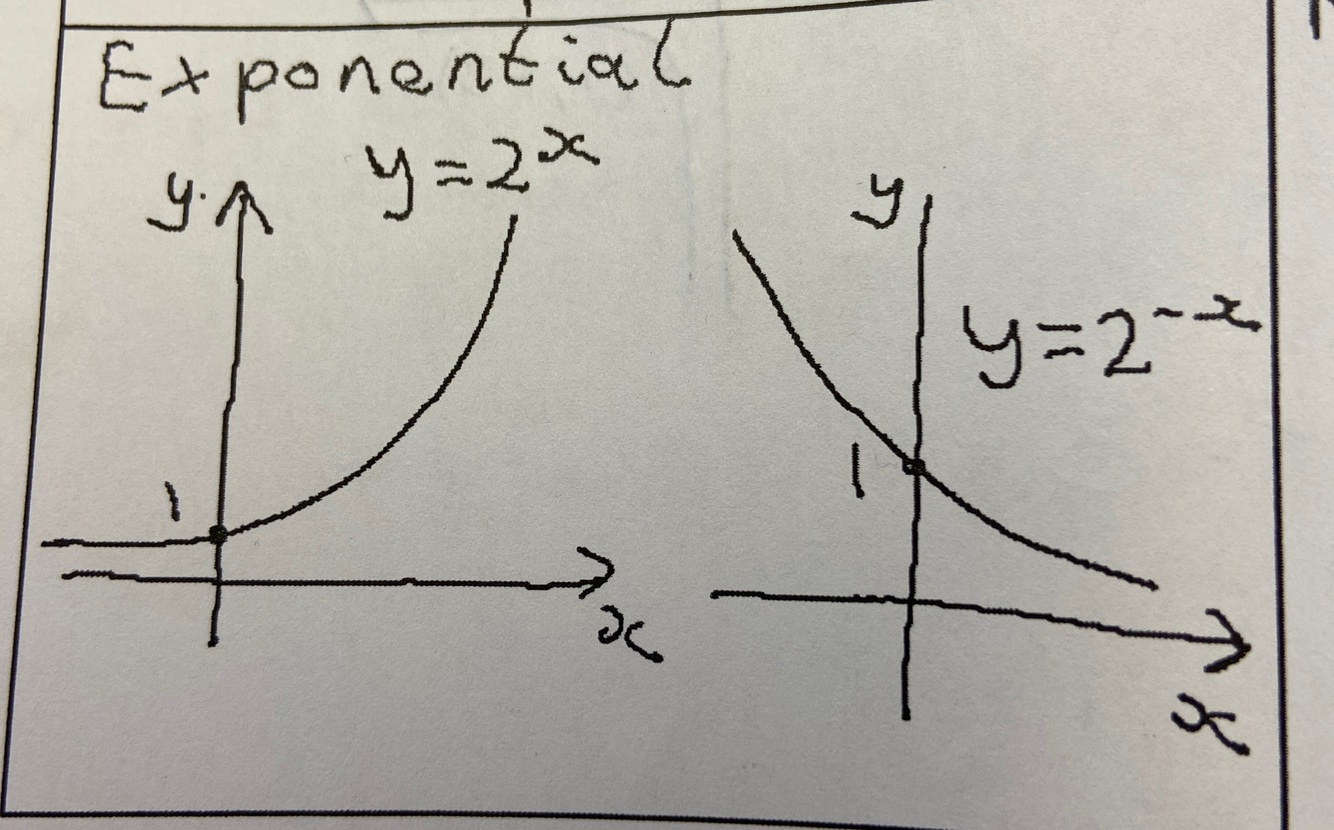 Exponential
y = 2^x
y
1
x
y
y = 2^-x
1
x